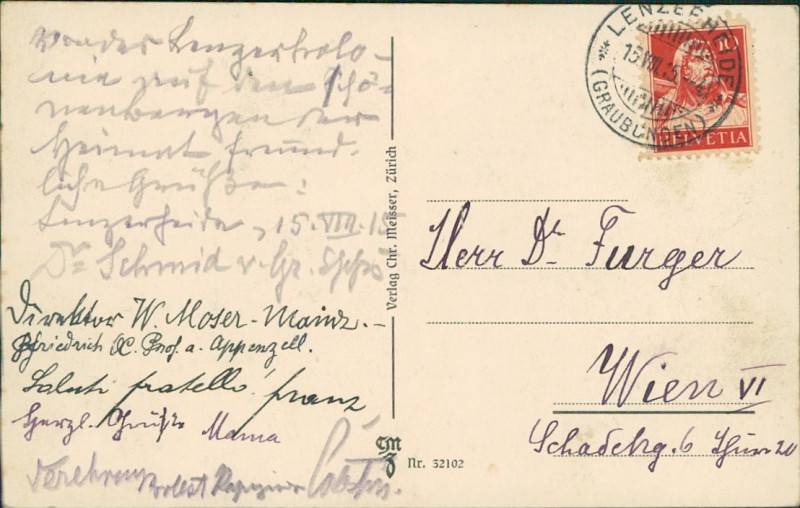 Von der Lenzerkolo-
nie auf den Schö-
nenbergen der
Heimat freund-
liche Grüße:
Lenzerheide, 15. VIII. 15
Dr Schmid v. Gr.
Direktor W. Moser-Mainz.-
Friedrich Prof. a. Appenzell.
Saluti fratello! franz
Herzl. Grüße Mama
Verlag Chr. Meisser, Zürich
CM
Z
Nr. 32102
LENZERHEIDE
15.VIII.15
(GRAUBÜNDEN)
10
HELVETIA
Herr Dr. Furger
Wien VI
6 20